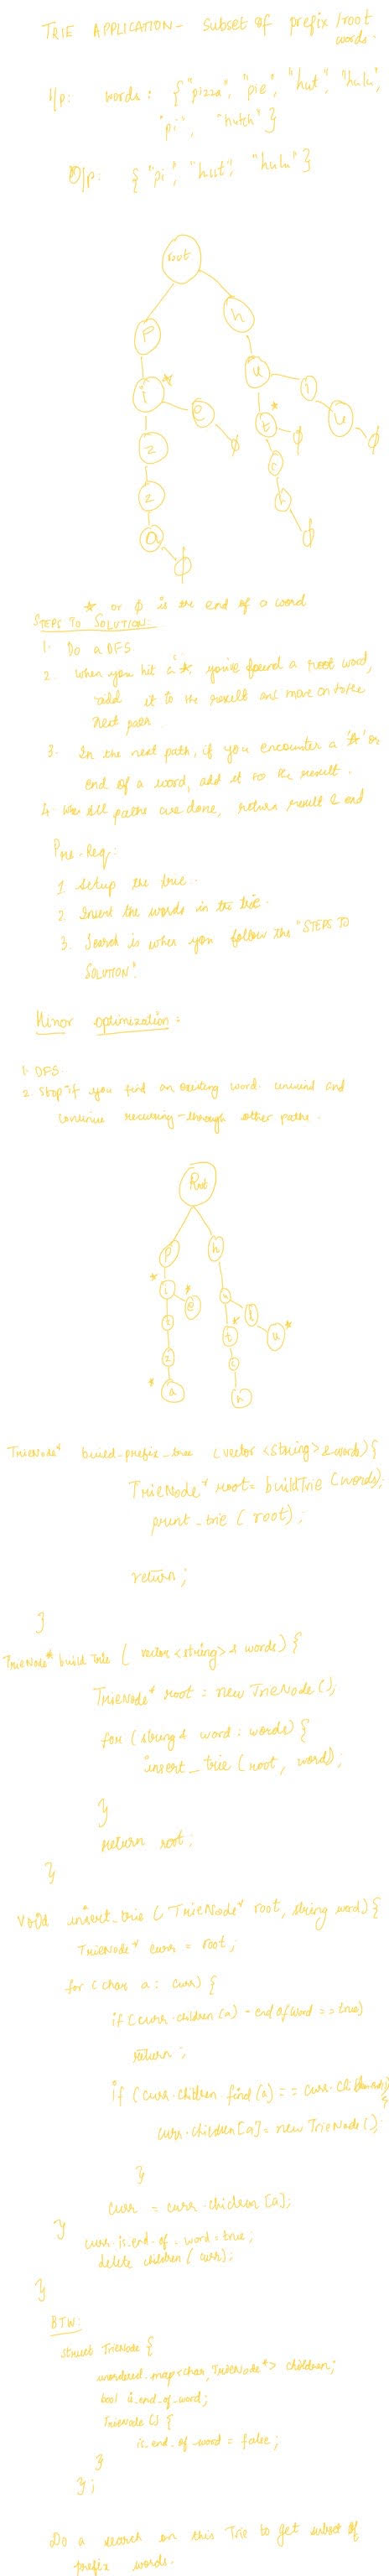 TRIE APPLICATION - Subset of prefix/root
words.
I/p: words: {"pizza", "pie", "hut", "hulu",
"pi", "hutch"}
O/p: {"pi", "hut", "hulu"}
root
P h
i * u
e i
z t * u
ϕ ϕ ϕ
z c
h
a ϕ
ϕ
* or ϕ is the end of a word
STEPS TO SOLUTION:
1. Do a DFS
2. When you hit a * you've found a root word,
add it to the result and move on to the
next path
3. In the next path, if you encounter a '*' or
end of a word, add it to the result.
4. When all paths are done, return result & end
Pre-Req:
1. Setup the trie.
2. Insert the words in the trie.
3. Search is when you follow the "STEPS TO
SOLUTION".
Minor optimization:
1. DFS.
2. Stop if you find an existing word. unwind and
continue recursing through other paths.
Root
P h
* i * u
e l
z t * u *
z c
* a h
TrieNode* build_prefix_tree (vector <string> & words) {
TrieNode* root = buildTrie (words);
print_trie (root);
return;
}
TrieNode* build Trie (vector <string> & words) {
TrieNode* root = new TrieNode();
for (string & word : words) {
insert_trie (root, word);
}
return root;
}
void insert_trie (TrieNode* root, string word) {
TrieNode* curr = root;
for (char a : curr) {
if (curr.children (a) - end of word == true)
return;
if (curr.children.find (a) == curr.children
{
curr.children [a] = new TrieNode();
}
curr = curr.children [a];
}
curr.is_end_of_word = true;
delete children (curr);
}
BTW:
struct TrieNode {
unordered_map<char, TrieNode*> children;
bool is_end_of_word;
TrieNode () {
is_end_of_word = false;
}
};
Do a search on this Trie to get subset of
prefix words.